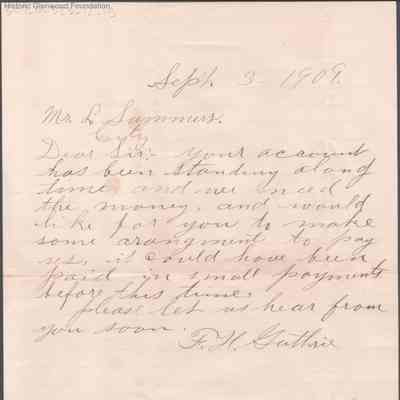 Historic Glenwood Foundation
Sept. 3 1909.
Mr. L Summers.
City
Dear Sir:- your account
has been standing along
time and we need
the money, and would
like for you to make
some arangment to pay
us, it could have been
paid in small payments
before this time.
please let us hear from
you soon.
F. H. Guthrie